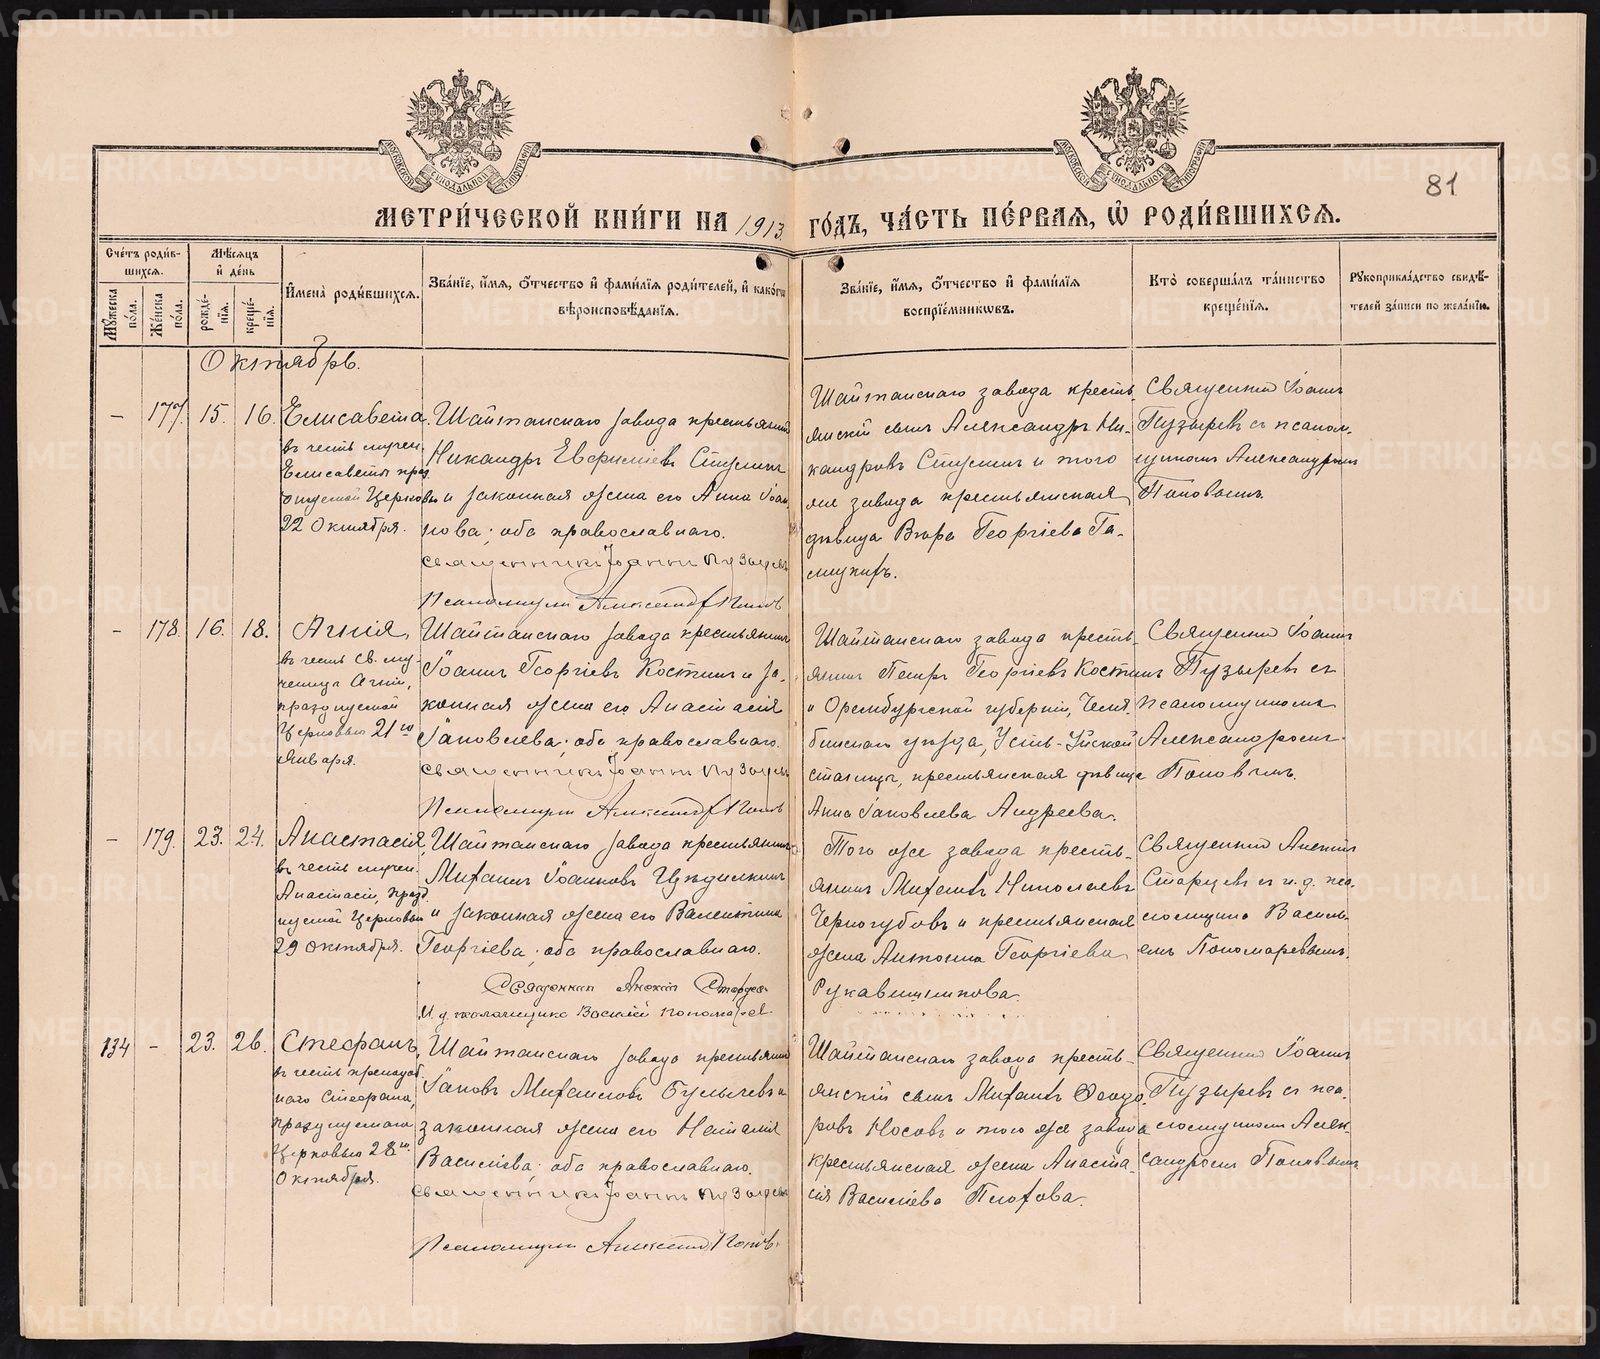 METRIKI.GASO-URAL.RU
81
МЕТРИ́ЧЕСКОЙ КНИ́ГИ НА 1913 ГО́ДЪ, ЧА́СТЬ ПЕ́РВАЯ, Ѡ҆ РОДИ́ВШИХСЯ.
Сче́тъ роди́в-
шихся.
Мѣ́сяцъ
и҆ де́нь
Мꙋ́жеска
по́ла.
Же́нска
по́ла.
рожде́-
нїя.
креще́-
нїя.
И҆мена̀ роди́вшихся.
Зва́нїе, и҆́мя, ѻ҆́тчество и҆ фами́лїя роди́телей, и҆ како́гѡ
вѣроисповѣ́данїя.
Зва́нїе, и҆́мя, ѻ҆́тчество и҆ фами́лїя
воспрїе́мникѡвъ.
Кто̀ соверша́лъ та́инство
креще́нїя.
Рꙋкоприкла́дство свидѣ́-
телей за́писи по жела́нїю.
Октябрь.
– 177. 15. 16. Елисавета
въ честь мучен.
Елисаветы праз
Церковью
22 Октября.
Шайтанскаго завода крестьянинъ
Никандръ Евфиміевъ Ступинъ
и законная жена его Анна Іоан
нова; оба православнаго.
Священникъ Іоаннъ Пузыревъ
Псаломщикъ Александр Попов
Шайтанскаго завода кресть
янскій сынъ Александръ Ни-
кандровъ Ступинъ и того
же завода крестьянская
дѣвица Вѣра Георгіева Га-
Священникъ Іоаннъ
Пузыревъ съ псалом-
щикомъ Александромъ
Поповымъ.
– 178. 16. 18. Агнія,
въ честь св. му-
ченицы Агніи,
празднуемой
Церковью 21го
Января.
Шайтанскаго завода крестьянинъ
Іоаннъ Георгіевъ Костинъ и за-
конная жена его Анастасія
Іаковлева; оба православнаго.
Священникъ Іоаннъ Пузыревъ
Псаломщикъ Александр Попов
Шайтанскаго завода кресть-
янинъ Петръ Георгіевъ Костинъ
и Оренбургской губерніи, Челя-
бинскаго уѣзда, Усть-Уйской
станицы, крестьянская дѣвица
Анна Іаковлева Андреева.
Священникъ Іоаннъ
Пузыревъ съ
псаломщикомъ
Александромъ
Поповымъ.
– 179. 23. 24. Анастасія,
въ честь мучен.
Анастасіи, празд
нуемой Церковью
29 Октября.
Шайтанскаго завода крестьянинъ
Михаилъ Іоанновъ
и законная жена его Валентина
Георгіева; оба православнаго.
Священникъ Алексій Старцев
И. д. псаломщика Василій Пономарев
Того же завода кресть-
янинъ Михаилъ Николаевъ
Черногубовъ и крестьянская
жена Антонина Георгіева
Рукавишникова.
Священникъ Алексій
Старцевъ съ и. д. пса-
ломщика Василі-
емъ Пономаревымъ.
134 – 23. 26. Стефанъ,
въ честь преподоб
наго Стефана,
празднуемаго
Церковью 28го
Октября.
Шайтанскаго завода крестьянинъ
Іаковъ Михаиловъ Булычевъ и
законная жена его Наталія
Василіева; оба православнаго.
Священникъ Іоаннъ Пузыревъ
Псаломщикъ Александр Попов
Шайтанскаго завода кресть-
янскій сынъ Михаилъ Ѳеодо-
ровъ Носовъ и того же завода
крестьянская жена Анаста-
сія Василіева Плохова.
Священникъ Іоаннъ
Пузыревъ съ пса-
ломщикомъ Алек-
сандромъ Поповымъ